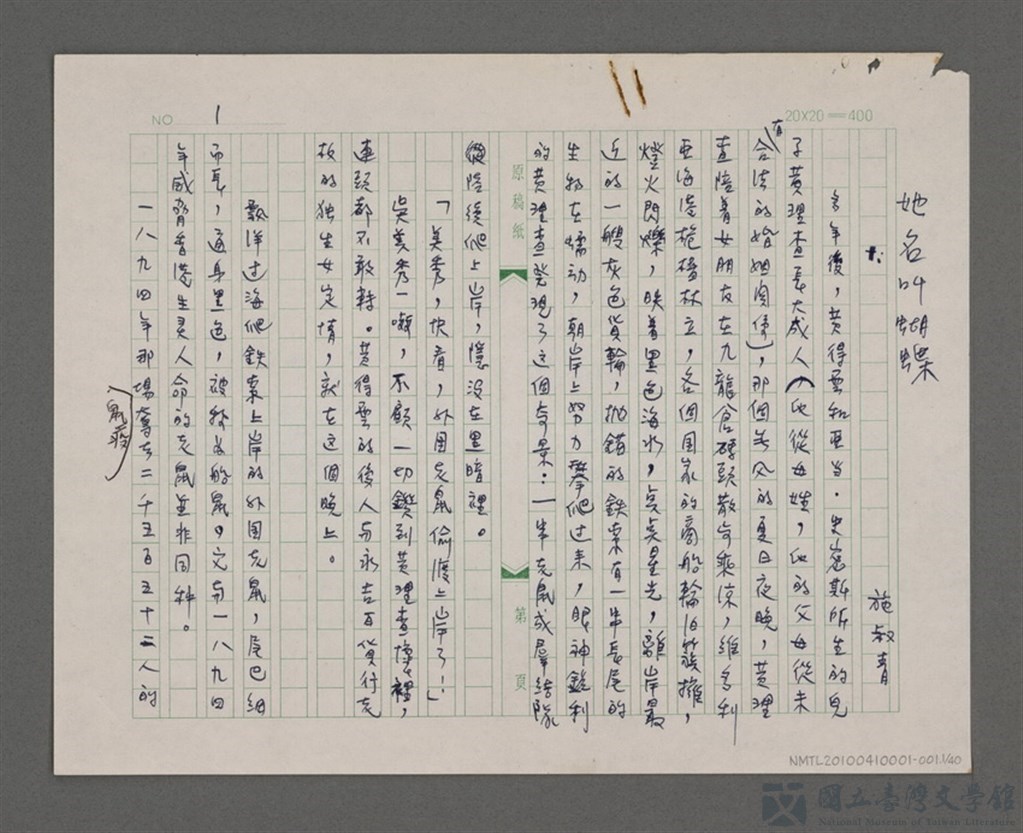 NO 1
20X20＝400
她名叫蝴蝶
施叔青
十.
多年後，黃得雲和亞当．史密斯所生的兒
子黃理查長大成人（他從母姓，他的父母從未
有合法的婚姻関係），那個無风的夏日夜晚，黃理
查陪着女朋友在九龍倉碼頭散步乘涼，維多利
亞海港桅檣林立，各個国家的商船輪泊簇擁，
燈火閃爍，映着黑色海水，点点星光，離岸最
近的一艘灰色貨輪，拋錨的鉄索有一串長尾的
生物在蠕动，朝岸上努力攀爬过来，眼神銳利
的黃理查發現了这個奇景：一串老鼠成羣結隊
原稿紙
第
頁
從陸續爬上岸，隱没在黑暗裡。
「美秀，快看，外国老鼠偷渡上岸了！」
吳美秀一嚇，不顧一切鑽到黃理查懷裡，
連頭都不敢轉。黃得雲的後人与永吉百貨行老
板的独生女定情，就在这個晚上。
飄洋过海爬鉄索上岸的外国老鼠，尾巴細
而長，通身黑色，被称为船鼠。它与一八九四
年威脅香港生灵人命的老鼠並非同种。
一八九四年那場奪去二千五百五十二人的
鼠疫
NMTL20100410001-001.1/40
國立臺灣文學館
National Museum of Taiwan Literature